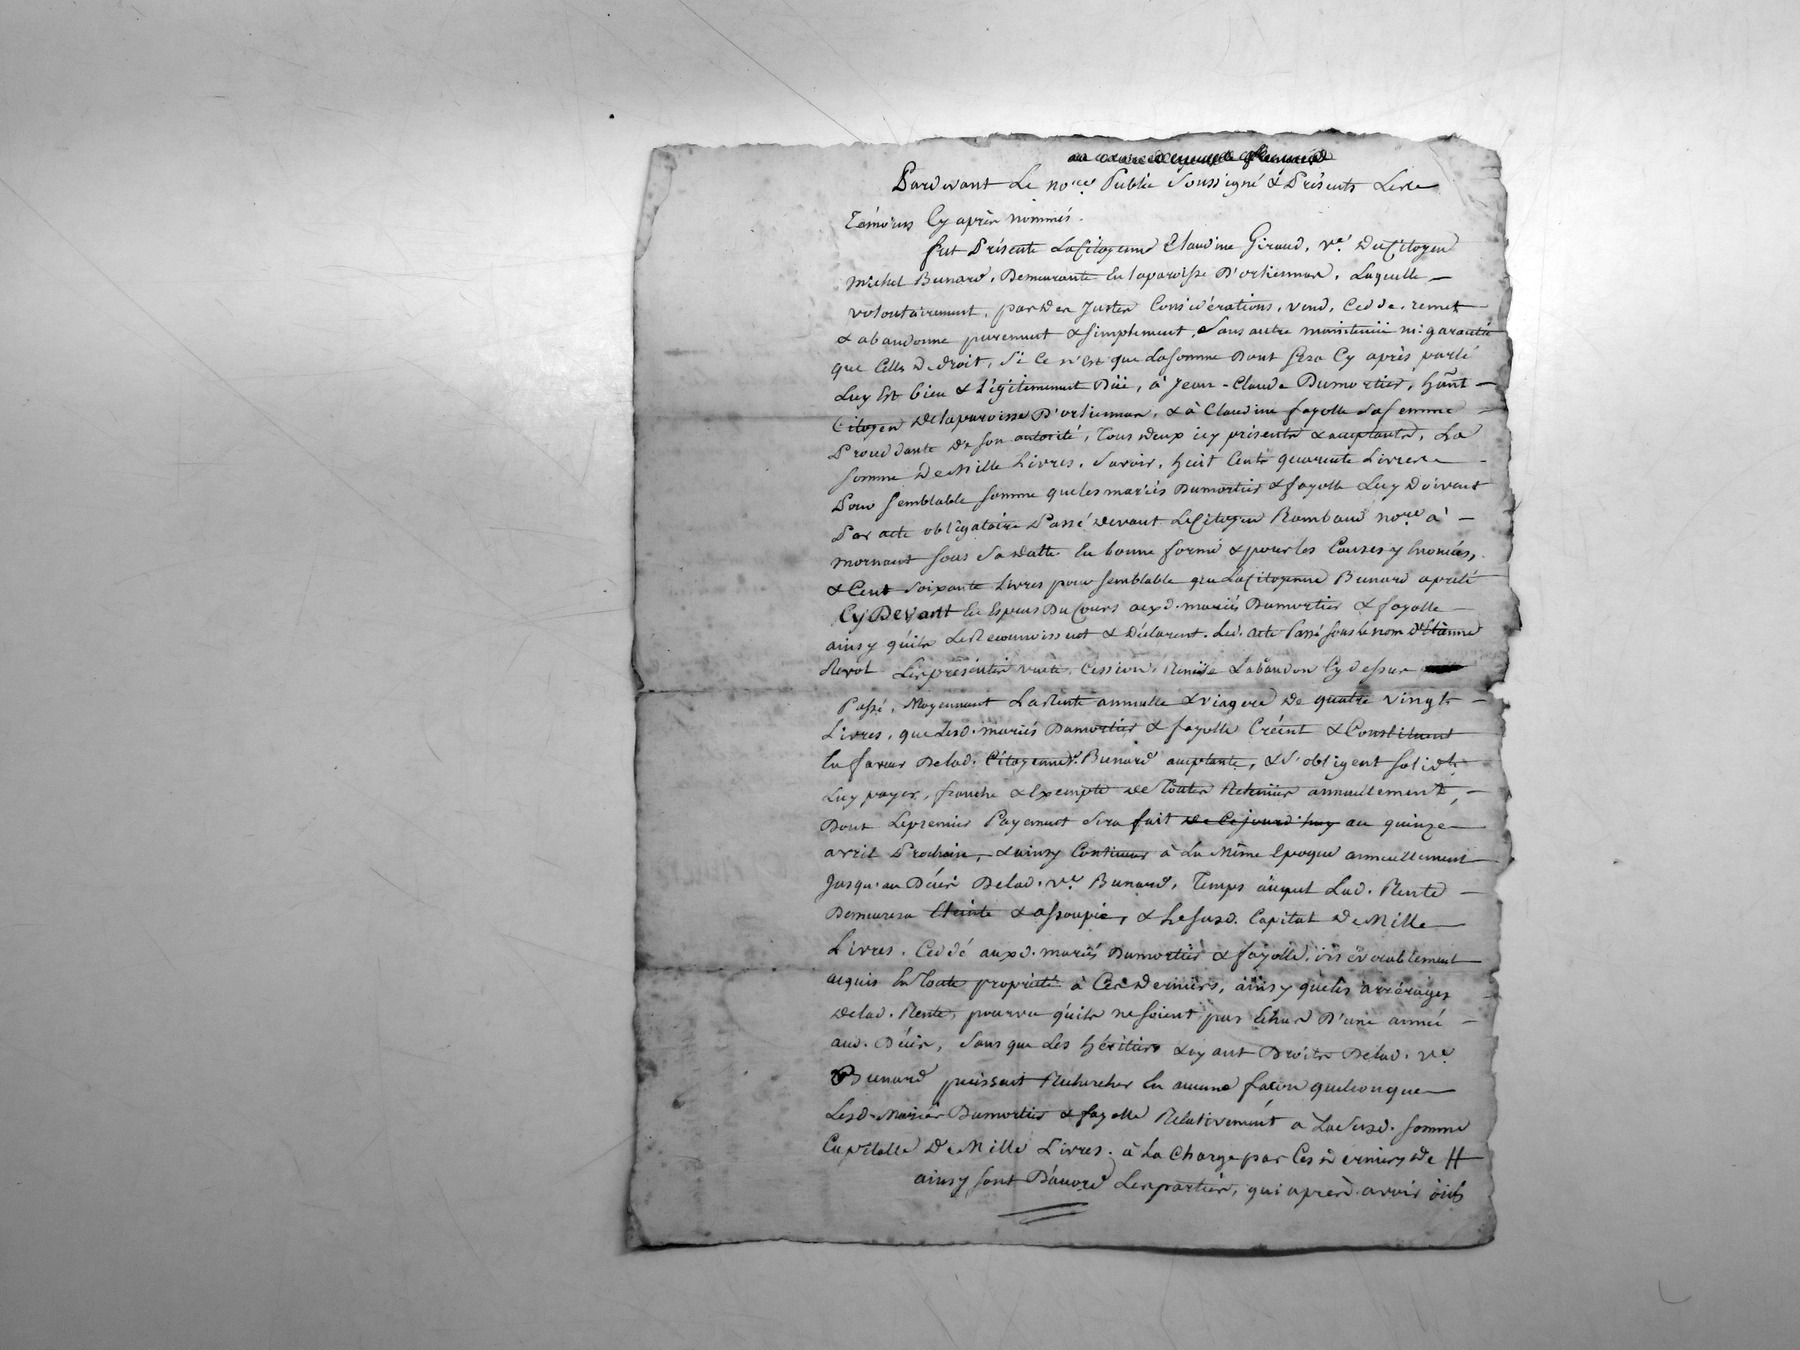 Pardevant Le no.re Public soussigné & Présents Les
Témoins Cy après nommés.
fut Présente La Citoyenne Claudine Giraud, v.e Du Citoyen
Michel Bunard, Demeurante En laparoisse D'orlienas, Laquelle
volontairement, par Des Justes Considérations, vend, Cedde, remet
& abandonne purement & simplement, Sans autre maintenüe ni garantie
que Celle De droit, Si Ce n'Est que La somme Dont sera Cy après parlé
Luy Est bien & Légitimement Düe, à Jean-Claude Dumortier, hânt
Citoyen De laparoisse D'orlienas, & à Claudine fayolle Sa femme
Procédante De son autorité, Tous Deux icy présents & acceptants, La
somme De Mille Livres, Savoir, huit Cents quarente Livres
Pour semblable somme que les mariés Dumortier & fayolle Luy Doivent
Par acte obligatoire Passé devant Le Citoyen Rambaud no.re à
mornant sous Sa datte En bonne forme & pour les Causes y Enoncées,
& Cent Soixante Livres pour semblable que La Citoyenne Bunard a prêté
Cy Devant En Espèces Du Cours auxd. mariés Dumortier & fayolle
ainsy qu'ils Le Reconnoissent & Déclarent. Led. acte Passé sous le nom d'Etienne
Revol Les présentes vente, Cession, Remise & abandon Cy dessus
Passé, Moyennant La Rente annuelle & viagere De quatre vingts
Livres, que Lesd. mariés Dumortier & fayolle Créent & Constituent
En faveur De lad. Citoyenne Bunard acceptante, & S'obligent solid.t
Luy payer, franche & Exempte de Toutes Retenües annuellement,
Dont Le premier Payement sera fait de Ce jourd'huy au quinze
avril Prochain, & ainsy Continuer à La Même Epoque annuellement
Jusqu'au Décès De lad. v.e Bunard, Temps auquel Lad. Rente
Demeurera Eteinte & assoupie, & Le susd. Capital De Mille
Livres. Ceddé auxd. mariés Dumortier & fayolle, irrévocablement
acquis En Toute propriété à Ces Derniers, ainsy que les arrérages
De lad. Rente, pourvu qu'ils ne soient pas Echus D'une année
aud. Décès, Sans que Les héritiers & ayant Droits De lad. v.e
Bunard puissent Rechercher En aucune façon quelconque
Lesd. Mariés Dumortier & fayolle Relativement à La susd. somme
Capitalle De Mille Livres. à La Charge par Ces Derniers De #
ainsy sont D'acord Les parties, qui après avoir oüis